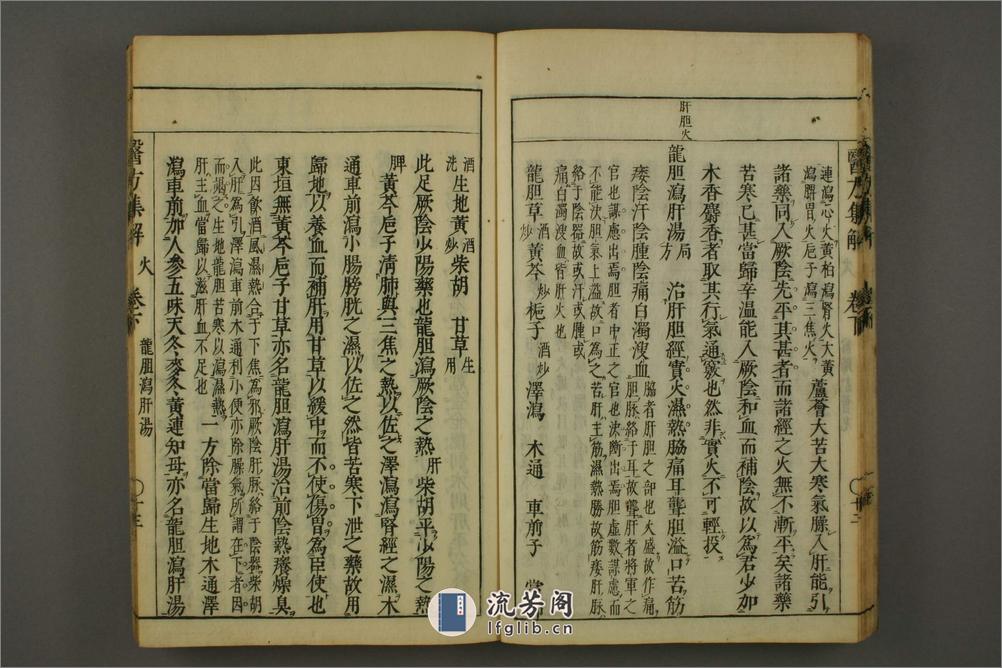 連瀉心火黃柏瀉腎火大黃
瀉脾胃火梔子瀉三焦火
蘆薈大苦大寒氣臊入肝能引
諸藥同入厥陰先平其甚者而諸經之火無不漸平矣諸藥
苦寒已甚當歸辛溫能入厥陰和血而補陰故以為君少加
木香麝香者取其行氣通竅也然非實火不可輕投
肝胆火
龍胆瀉肝湯
局方
治肝胆經實火濕熱脇痛耳聾胆溢口苦筋
痿陰汗陰腫陰痛白濁溲血
脇者肝胆之部也火盛故作痛
胆脉絡于耳故聾肝者將軍之
官也謀慮出焉胆者中正之官也決斷出焉胆虛數謀慮而
不能決胆氣上溢故口為之苦肝主筋濕熱勝故筋痿肝脉
絡于陰器故或汗或腫或
痛白濁溲血皆肝火也
龍胆草
酒炒
黃芩
炒
梔子
酒炒
澤瀉 木通 車前子
酒洗
生地黃
酒炒
柴胡 甘草
生用
此足厥陰少陽藥也龍胆瀉厥陰之熱
肝
柴胡平少陽之熱
胆
黃芩梔子清肺與三焦之熱以佐之澤瀉瀉腎經之濕木
通車前瀉小腸膀胱之濕以佐之然皆苦寒下泄之藥故用
歸地以養血而補肝用甘草以緩中而不使傷胃為臣使也
東垣無黃芩梔子甘草亦名龍胆瀉肝湯治前陰熱癢燥臭
此因飲酒風濕熱合于下焦為邪厥陰肝脉絡于陰器柴胡
入肝為引澤瀉車前木通利小便亦除臊氣所謂在下者因
而竭之生地龍胆苦寒以瀉濕熱
肝主血當歸以滋肝血不足也
一方除當歸生地木通澤
瀉車前加人參五味天冬麥冬黃連知母亦名龍胆瀉肝湯
醫方集解 火 卷下 龍胆瀉肝湯
醫方集解 卷下
流芳阁
lfglib.cn